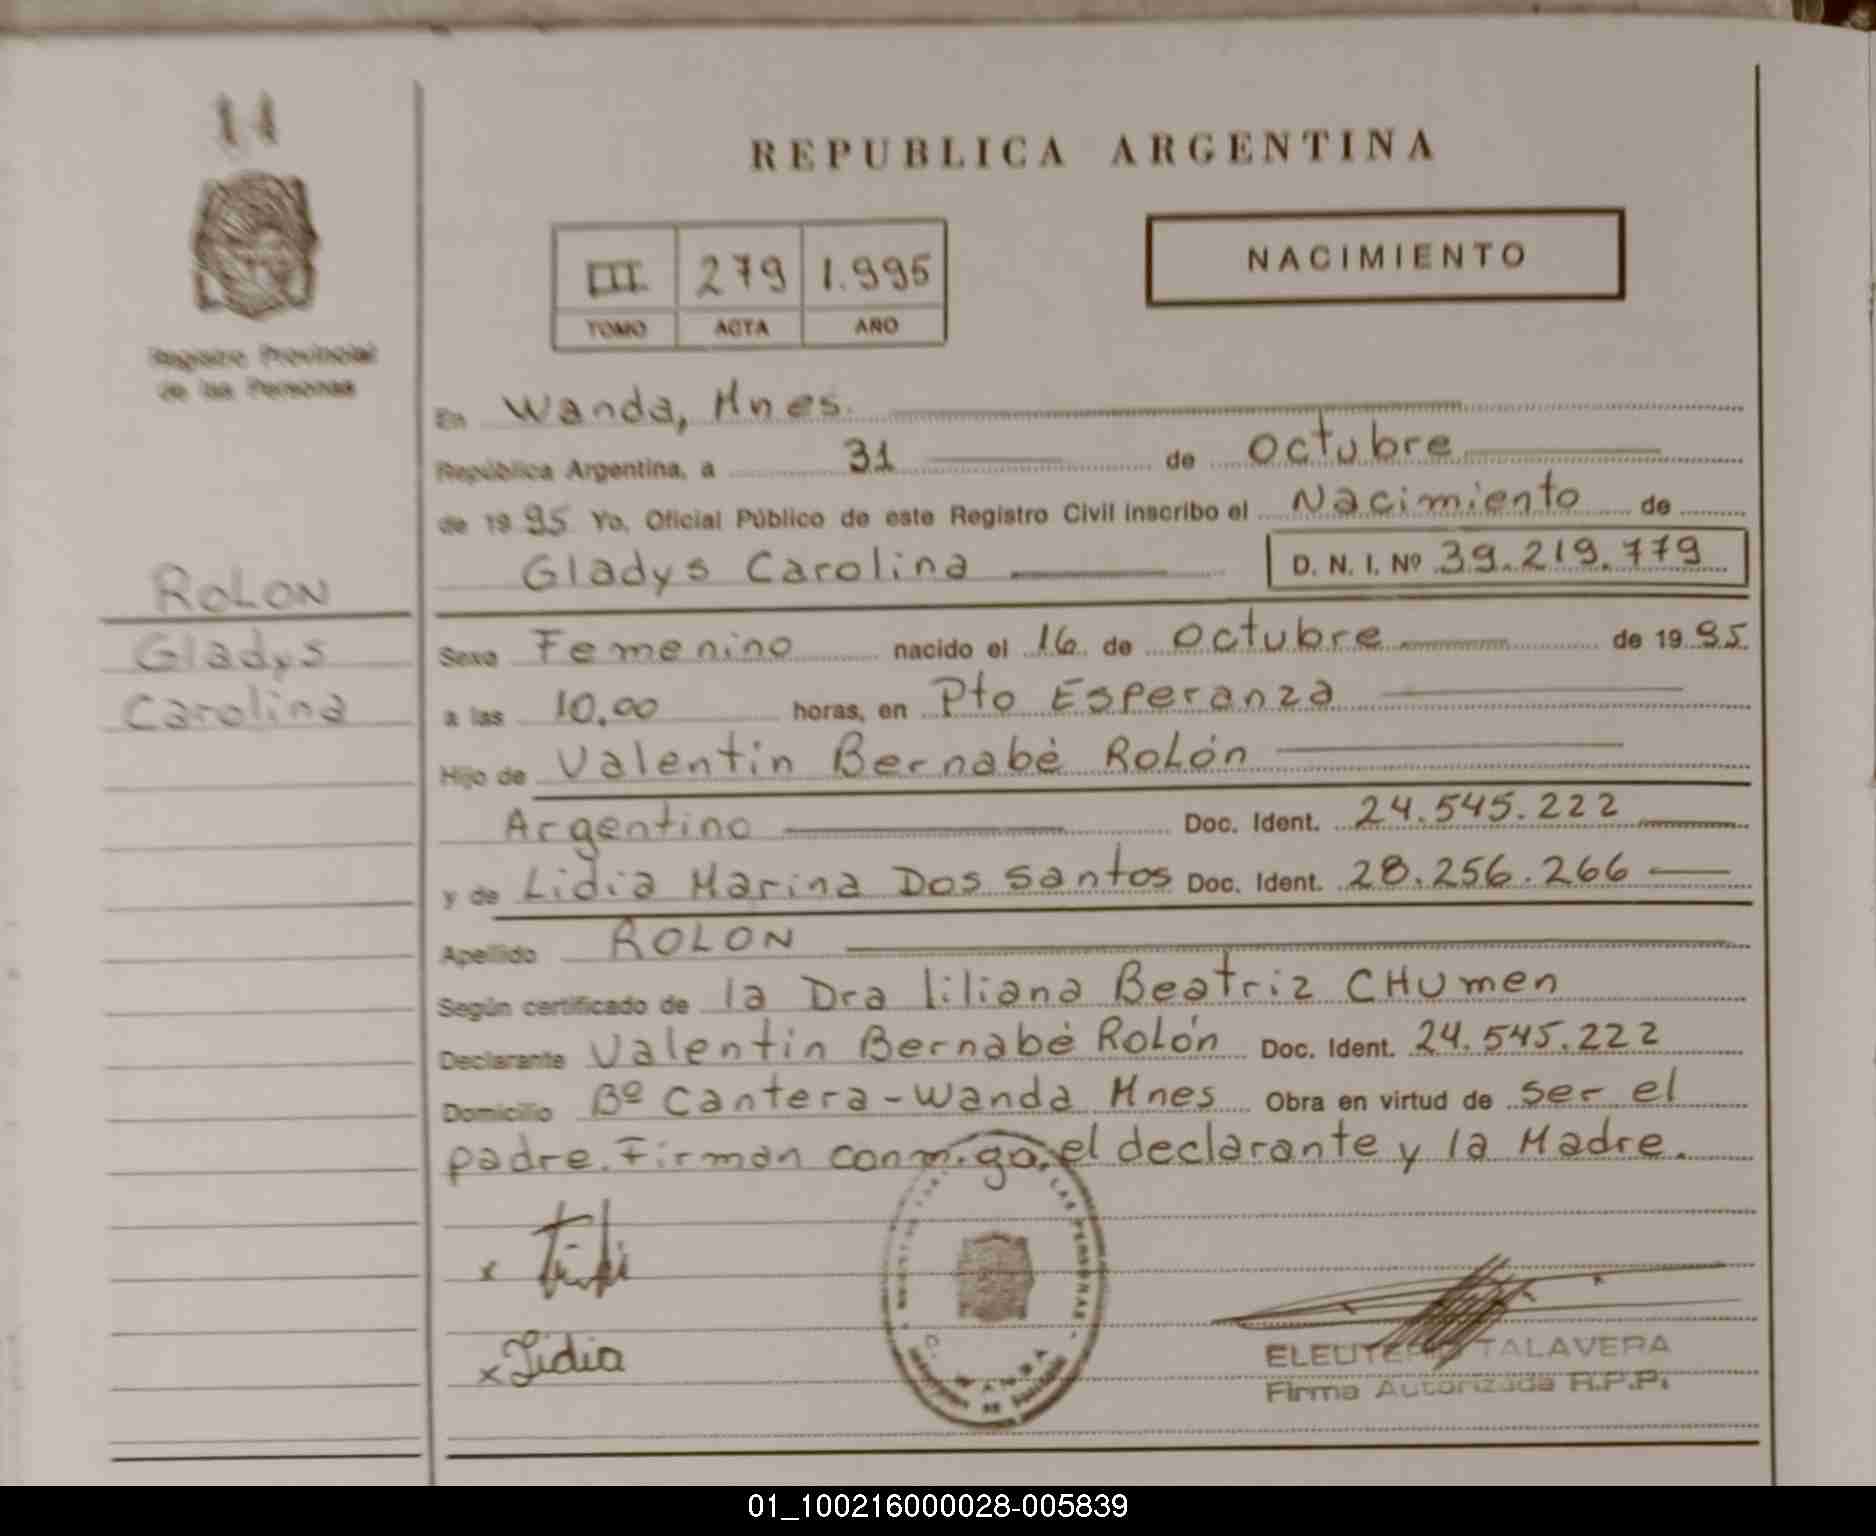 11
Registro Provincial
de las Personas
REPUBLICA ARGENTINA
III 279 1.995
TOMO ACTA AÑO
NACIMIENTO
En Wanda, Mnes.
República Argentina, a 31 de Octubre
de 19 95 Yo, Oficial Público de este Registro Civil inscribo el Nacimiento de
Gladys Carolina D. N. I. Nº 39.219.779
ROLON
Gladys
Carolina
Sexo Femenino nacido el 16 de Octubre de 19 95.
a las 10,00 horas, en Pto Esperanza
Hijo de Valentin Bernabé Rolón
Argentino Doc. Ident. 24.545.222
y de Lidia Marina Dos Santos Doc. Ident. 28.256.266
Apellido ROLON
Según certificado de la Dra liliana Beatriz CHumen
Declarante Valentin Bernabé Rolón Doc. Ident. 24.545.222
Domicilio Bº Cantera-Wanda Mnes Obra en virtud de ser el
padre. Firman conmigo, el declarante y la Madre.
x
x Lidia
LAS PERSONAS
WANDA
ELEUTERIO TALAVERA
Firma Autorizada R.P.P.
01_100216000028-005839